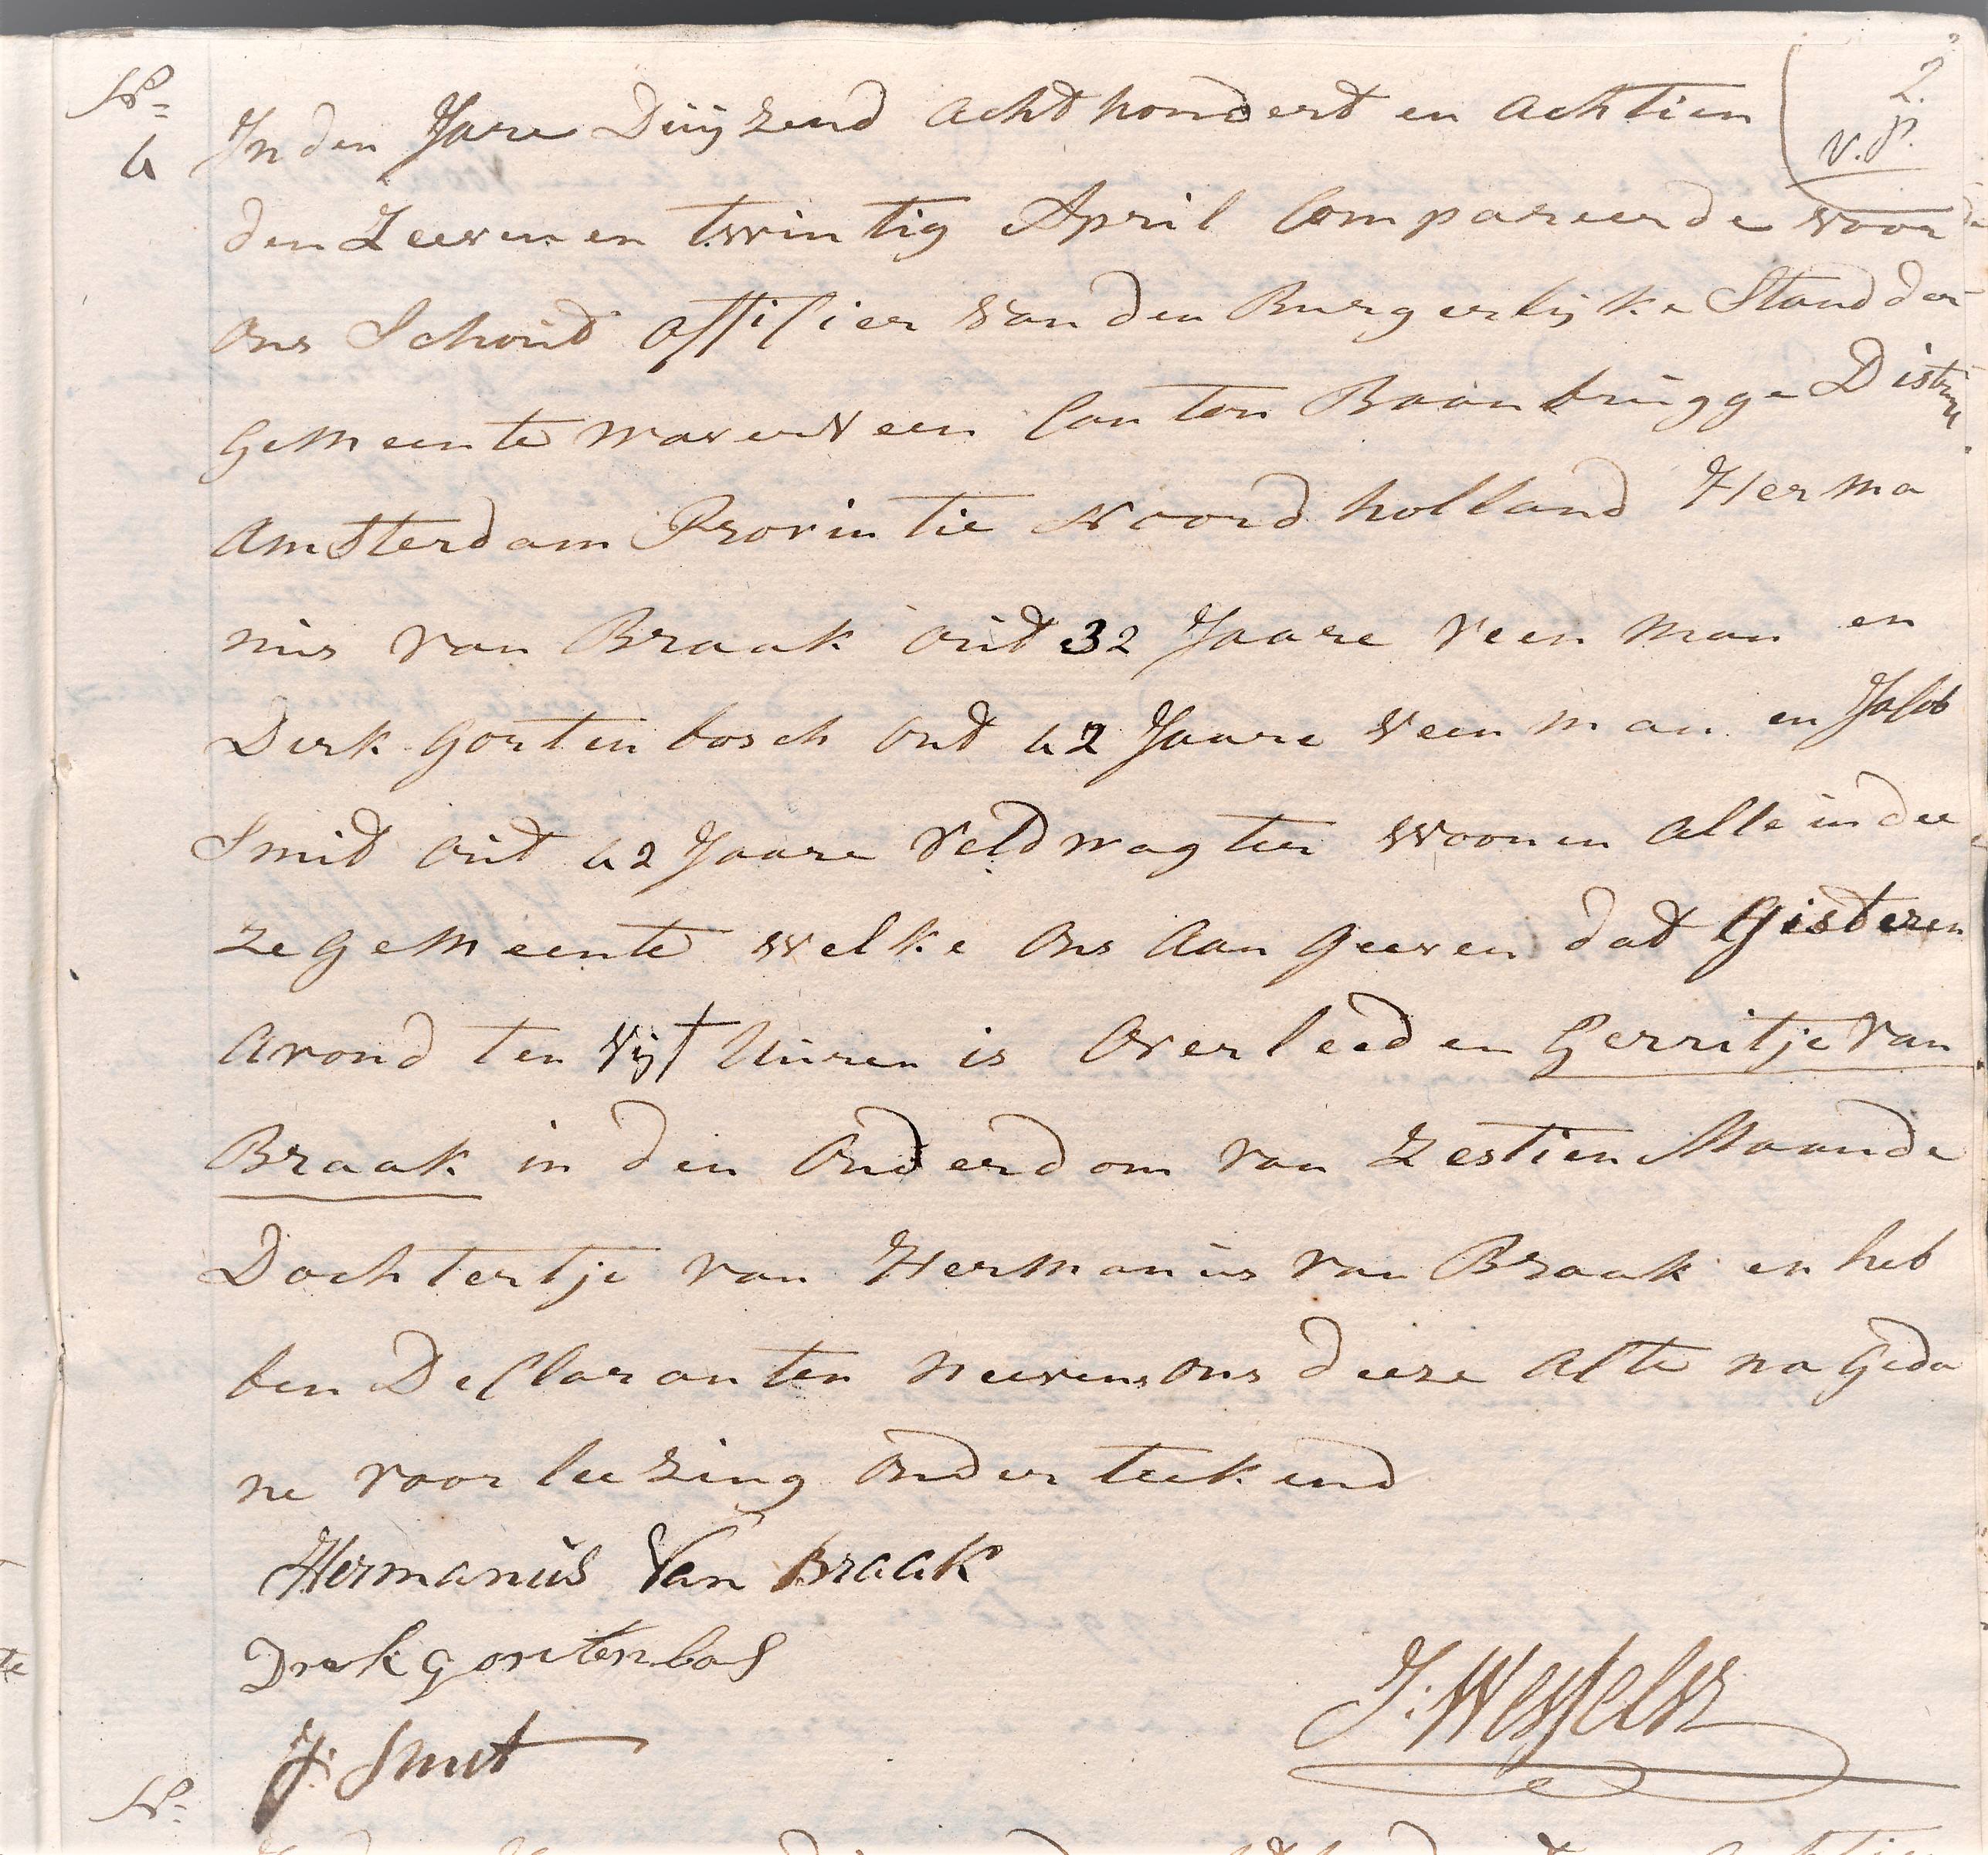 No. 2.
4 In den Jare Duÿzend acht hondert en achtien v.P.
den Zeeven en twintig April Compareerde voor
ons Schoút offisier van den Burgerlijke Stand der
gemeente waverveen Canton Baambrúgge District
Amsterdam Provintie Noord holland Herma
nús van Braak oút 32 Jaare veen man en
Dirk Gortenbosch out 42 Jaare veen man en Jacob
Smid oút 42 Jaare Veldwagter woonen alle in dee
ze gemeente welke ons aan geeven dat Gisteren
avond ten vijf Uúren is overleeden Gerritje van
Braak in den ouderdom van Zestien Maande
Dochtertje van Hermanús van Braak en heb
ben Declaranten neevens ons deeze acte na geda
ne voorleezing onderteekend
Hermanús Van Braak
Dirk gortenbos
J: Smit J: Wesselsz
No.